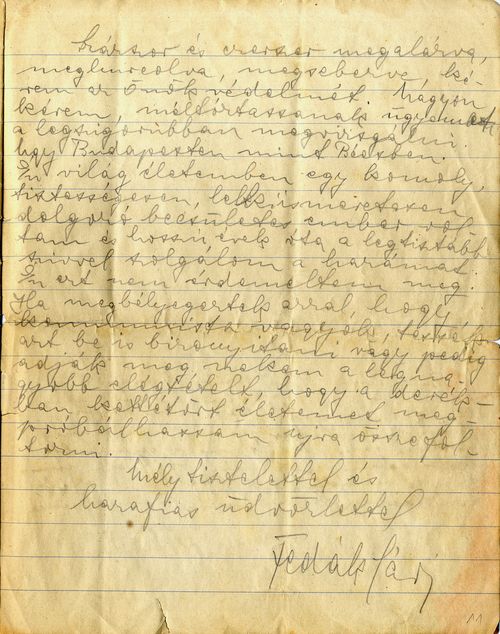 százszor és ezerszer megalázva,
meghurcolva, megsebezve, ké-
rem az Önök védelmét. Nagyon
kérem, méltóztassanak ügyemet
a legszigorúbban megvizsgálni.
úgy Budapesten mint Bécsben.
Én világ életemben egy komoly,
tisztességesen, lelkiismeretesen
dolgozó becsületes ember vol-
tam és hosszú évek óta a legtisztább
szívvel szolgálom a hazámat.
Én ezt nem érdemeltem meg.
Ha megbélyegeztek azzal, hogy
kommunista vagyok, tessék
azt be is bizonyítani vagy pedig
adják meg nekem a legna-
gyobb elégtételt, hogy a derék-
ban kettétört életemet meg-
próbálhassam újra összefol-
tozni.
Mély tisztelettel és
hazafias üdvözlettel
Fedák Sári
11